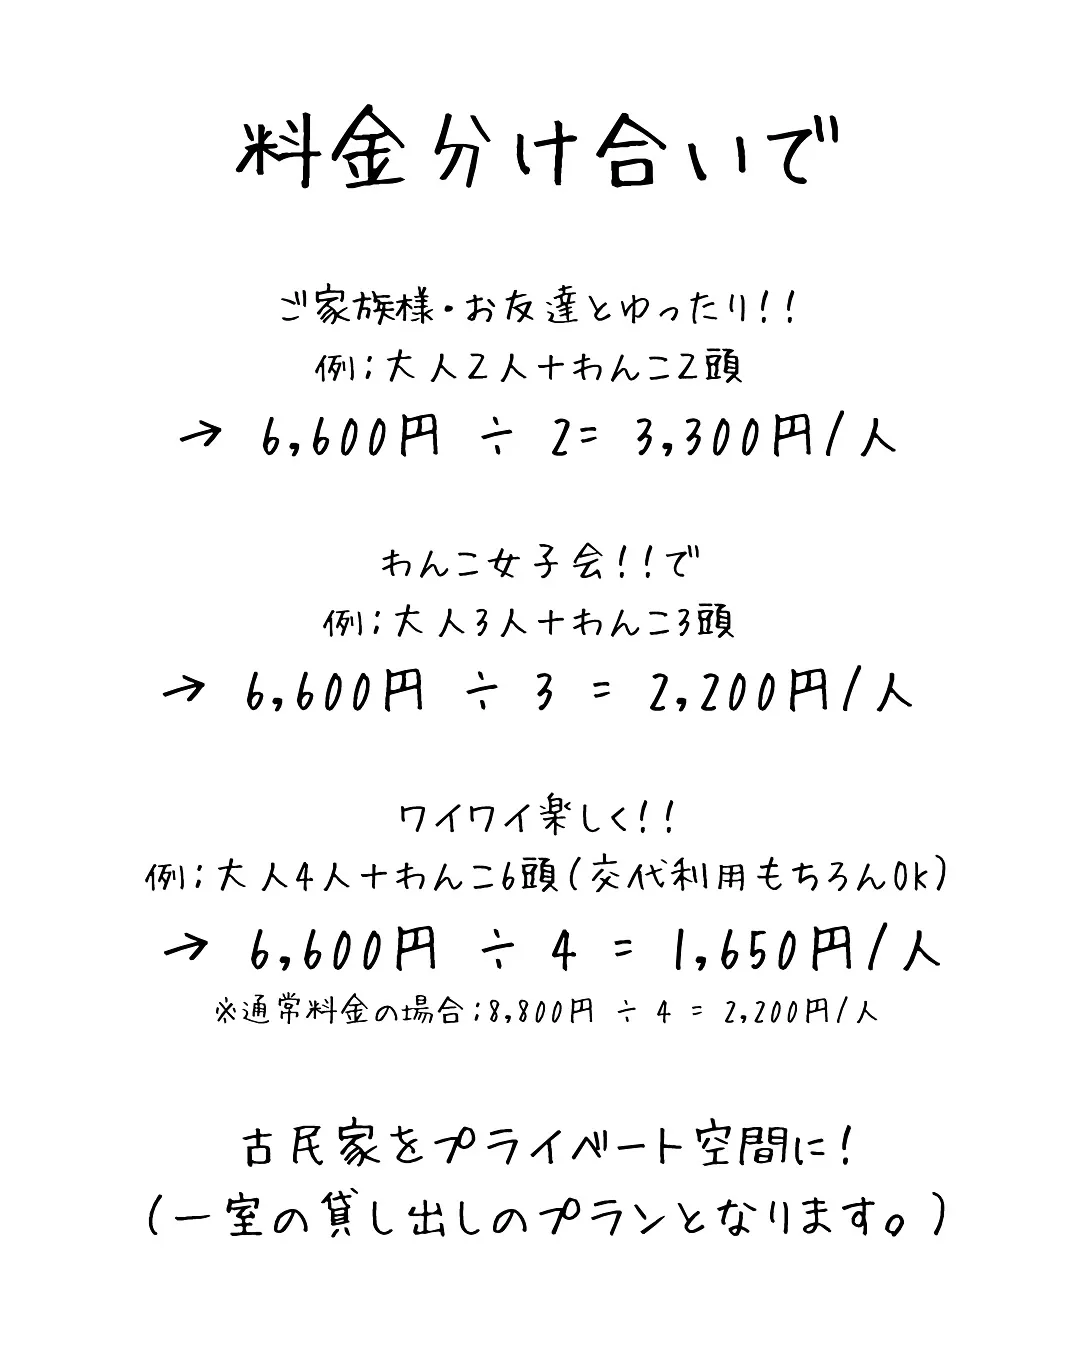 料金分け合いで
ご家族様・お友達とゆったり!!
例;大人2人+わんこ2頭
→ 6,600円 ÷ 2= 3,300円/人
わんこ女子会!!で
例;大人3人+わんこ3頭
→ 6,600円 ÷ 3 = 2,200円/人
ワイワイ楽しく!!
例;大人4人+わんこ6頭(交代利用もちろんOK)
→ 6,600円 ÷ 4 = 1,650円/人
※通常料金の場合;8,800円 ÷ 4 = 2,200円/人
古民家をプライベート空間に!
(一室の貸し出しのプランとなります。)